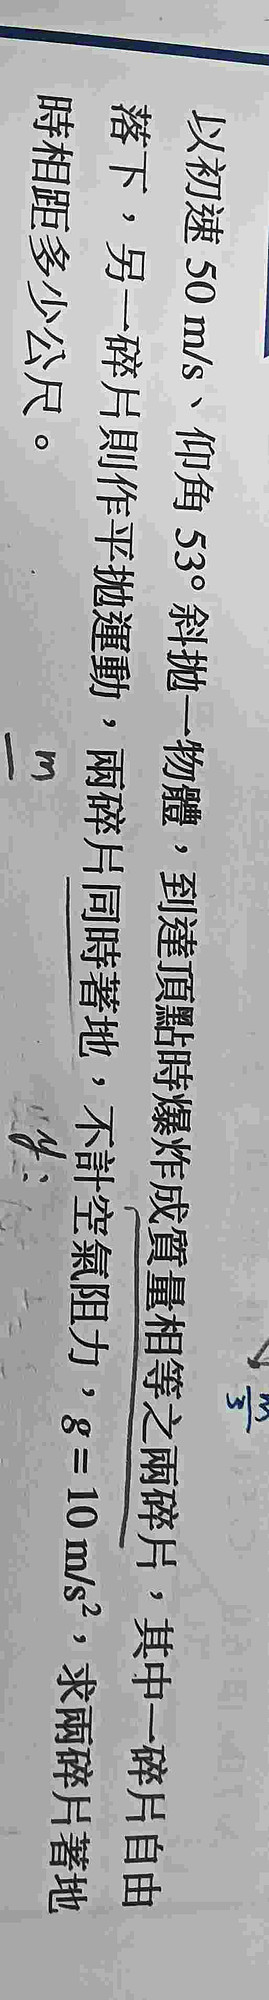 以初速 50 m/s、仰角 53° 斜拋一物體，到達頂點時爆炸成質量相等之兩碎片，其中一碎片自由
落下，另一碎片則作平拋運動，兩碎片同時著地，不計空氣阻力，g = 10 m/s²，求兩碎片著地
時相距多少公尺。
m
y:
m
3